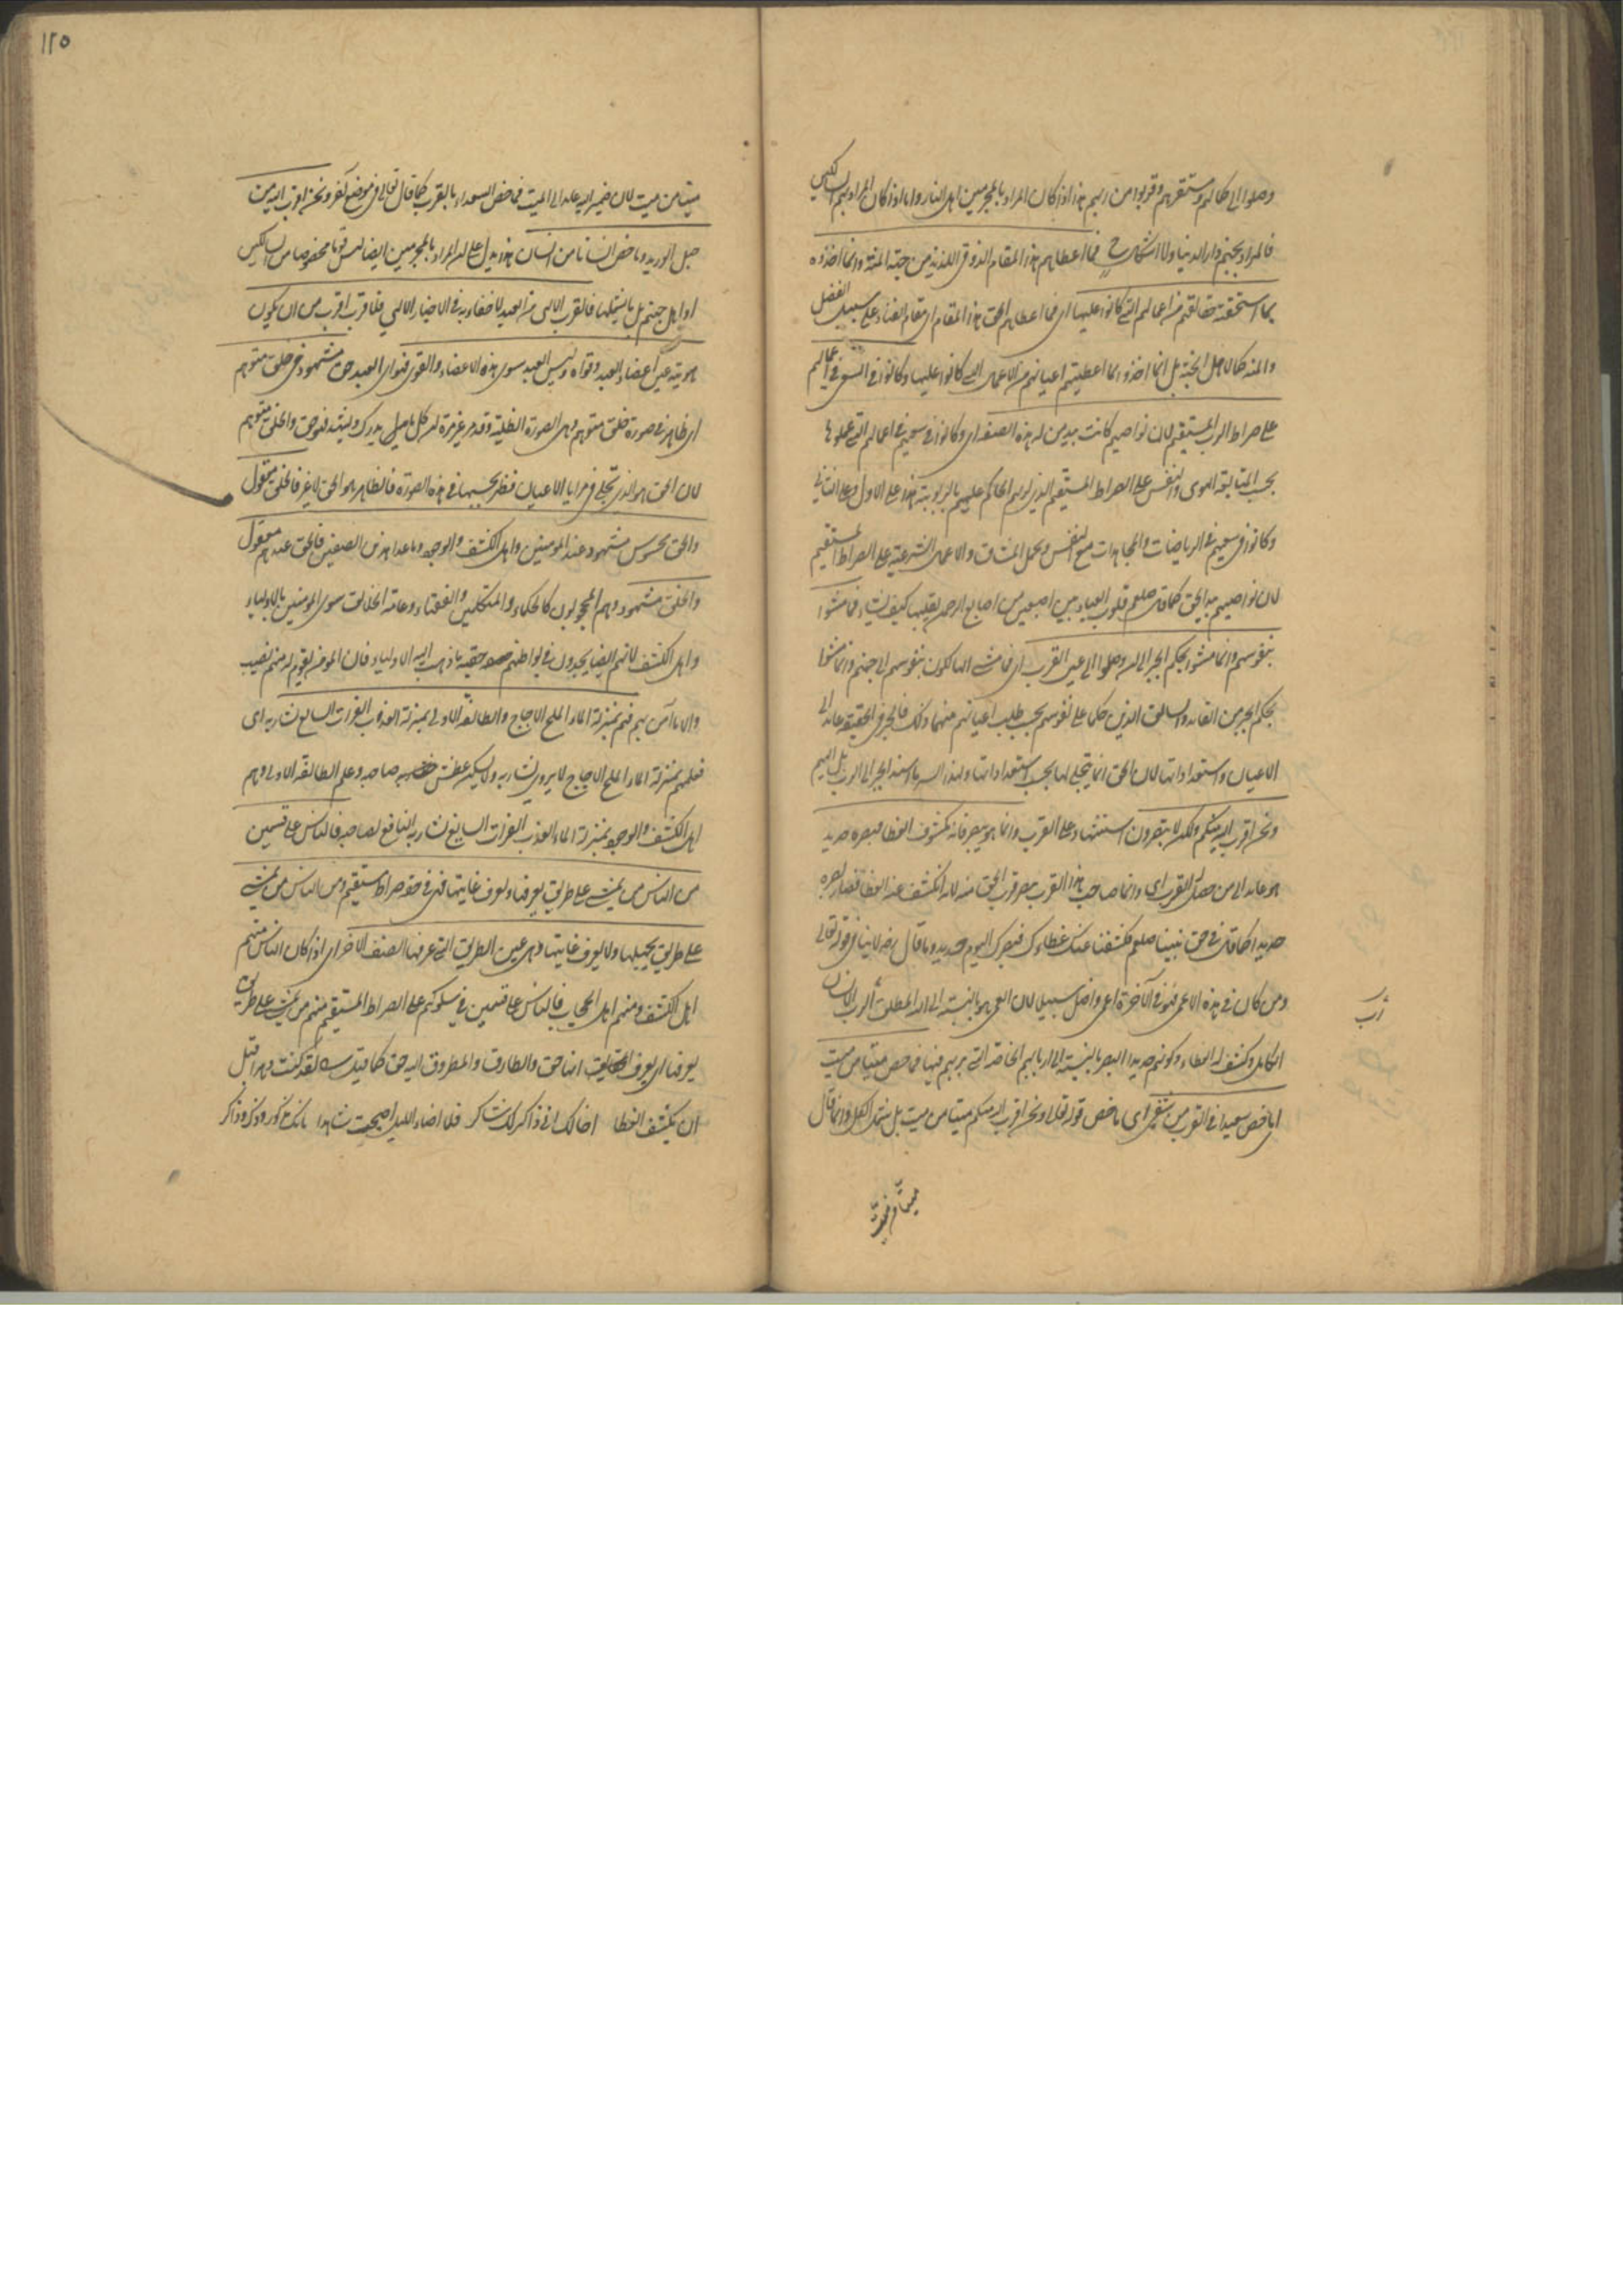 وصلوا الى كمالهم ومستقرهم وقربوا من ربهم هذا اذا كان المراد بالمجرمين اهل النار واما اذا كان المراد بهم السالكين
فالمراد بجهنم دار الدنيا ولا اشكال ح فما اعطاهم هذا المقام الذوقى اللذيذ من جهة المنة وانما اخذوه
بما استحقته حقائقهم من اعمالهم التى كانوا عليها اى فما اعطاهم الحق هذا المقام اى مقام الفناء على سبيل الفضل
والمنة كما لاهل الجنة بل انما اخذوا بما اعطتهم اعيانهم من الاعمال التى كانوا عليها وكانوا فى السعى فى اعمالهم
على صراط الرب المستقيم لان نواصيهم كانت بيد من له هذه الصفة اى وكانوا فى سعيهم فى اعمالهم التى عملوها
بحسب المتابعة الهوى والنفس على الصراط المستقيم الذى لربهم الحاكم عليهم بالربوبية هذا على الاول وعلى الثانى
وكانوا فى سعيهم فى الرياضات والمجاهدات مع النفس وتحمل المشاق والاعمال الشرعية على الصراط المستقيم
لان نواصيهم بيد الحق كما قال صلعم قلوب العباد بين اصبعين من اصابع الرحمن يقلبها كيف يشاء فما مشوا
بنفوسهم وانما مشوا بحكم الجبر الى ان وصلوا الى عين القرب اى فما مشى السالكون بنفوسهم الى جهنم وانما مشوا
بحكم الجبر من القائد والسائق الذين حكما على نفوسهم بحسب طلب اعيانهم منهما ذلك فالجبر فى الحقيقة عائد الى
الاعيان واستعداداتها لان الحق انما يتجلى لها بحسب استعداداتها ولهذا السر ما اسند الجبر الى الرب بل اليهم
ونحن اقرب اليه منكم ولكن لا تبصرون استشهاد على القرب وانما هو يبصر فانه مكشوف الغطا فبصره حديد
هو عائد الى من حصل له القرب اى وانما صاحب هذا القرب يبصر قرب الحق منه لانه انكشف عنه الغطا فصار بصره
حديدا كما قال فى حق نبينا صلعم فكشفنا عنك غطاءك فبصرك اليوم حديد وما قال هذا لا ينافى قوله تعالى
ومن كان فى هذه الاعمى فهو فى الآخرة اعمى واضل سبيلا لان العمى هو بالنسبة الى الله المطلق رب الانسان
رب
الكامل وكشف الغطاء وكونهم حديدا البصر بالنسبة الى اربابهم الخاصة التى بربهم فيها فما خص ميتا من ميت
اى ما خص سعيدا فى القرب من شقى اى ما خص قوله تعالى ونحن اقرب اليه منكم ميتا من ميت بل شمل الكل وانما قال
١١٥
ميتا من ميت لان ضمير اليه عائد الى الميت فما خص السعداء بالقرب كما قال تعالى فى موضع آخر ونحن اقرب اليه من
حبل الوريد وما خص انسانا من انسان هذا يدل على ان المراد بالمجرمين ايضا ليس قوما مخصوصا من السالكين
او اهل جهنم بل ما يشملهما فالقرب الالهى من العبيد لا خفاء به فى الاخبار الالهى فلا قرب اقرب من ان يكون
هويته عين اعضاء العبد وقواه وليس العبد سوى هذه الاعضاء والقوى فهو اى العبد حق مشهود فى خلق متوهم
اى ظاهر فى صورة خلق متوهم وهى الصورة الظلية وقد مر غير مرة ان كل ما يدرك ويشهد فهو حق والخلق متوهم
لان الحق هو الذى تجلى فى مرايا الاعيان فظهر بحسبها فى هذه الصورة فالظاهر هو الحق لا غير فالخلق معقول
والحق محسوس مشهود عند المؤمنين واهل الكشف والوجود وما عدا هذين الصنفين فالحق عندهم معقول
والخلق مشهود وهم المحجوبون كالحكماء والمتكلمين والفقهاء وعامة الخلائق سوى المؤمنين بالاولياء
واهل الكشف لانهم ايضا يجدون فى بواطنهم حقية ما ذهب اليه الاولياء فان المؤمن بقوم له منهم نصيب
والا ما آمن بهم فهم بمنزلة الماء الملح الاجاج والطائفة الاولى بمنزلة العذب الفرات السايغ شاربه اى
فعلمهم بمنزلة الماء الملح الاجاج لا يروى شاربه ولا يسكن عطش صاحبه وعلم الطائفة الاولى وهم
اهل الكشف والوجود بمنزلة الماء العذب الفرات السايغ شاربه النافع لصاحبه فالناس على قسمين
من الناس من يمشى على طريق يعرفها ويعرف غايتها فهى فى حقه صراط مستقيم ومن الناس من يمشى
على طريق يجهلها ولا يعرف غايتها وهى عين الطريق التى عرفها الصنف الآخر اى اذا كان الناس منهم
اهل الكشف ومنهم اهل الحجاب فالناس على قسمين فى سلوكهم على الصراط المستقيم منهم من يمشى على طريق
يعرفها اى يعرف انها حق والطارق والمطروق اليه حق كما قيل لقد كنت دهرا قبل
ان يكشف الغطا اخالك انى ذاكر لك شاكر فلما اضاء الليل اصبحت شاهدا بانك مذكور وذكر وذاكر